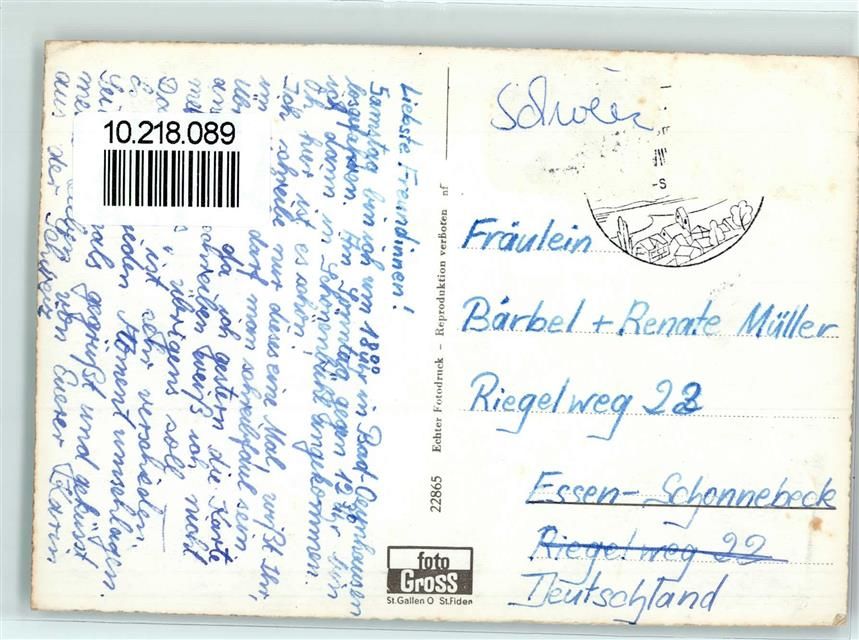 Liebste Freundinnen!
Samstag bin ich um 18⁰⁰ Uhr in Bad-Oeynhausen
losgefahren. Am Sonntag gegen 12³⁰ Uhr bin
ich dann in Schönenbühl angekommen.
Oh hier ist es schön!
Ich schreibe nur dieses eine Mal, wißt Ihr,
im darf man schreibfaul sein,
da ich gestern die Karte
schreiben (weiß ich nicht
übrigens soll
ist sehr verschieden.
jeden Moment umschlagen.
mals gegrüßt und geküsst
von Eurer Karin
aus der Schweiz
10.218.089
22865 Echter Fotodruck – Reproduktion verboten nf
foto
GROSS
St.Gallen O St.Fiden
Schweiz
-S
Fräulein
Bärbel + Renate Müller
Riegelweg 22
Essen-Schonnebeck
Riegelweg 22
Deutschland